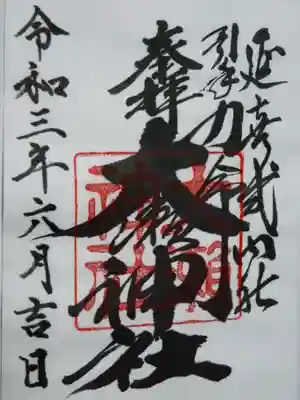 延喜式内社
引手力命
奉拝
大瀬神社
令和三年六月吉日